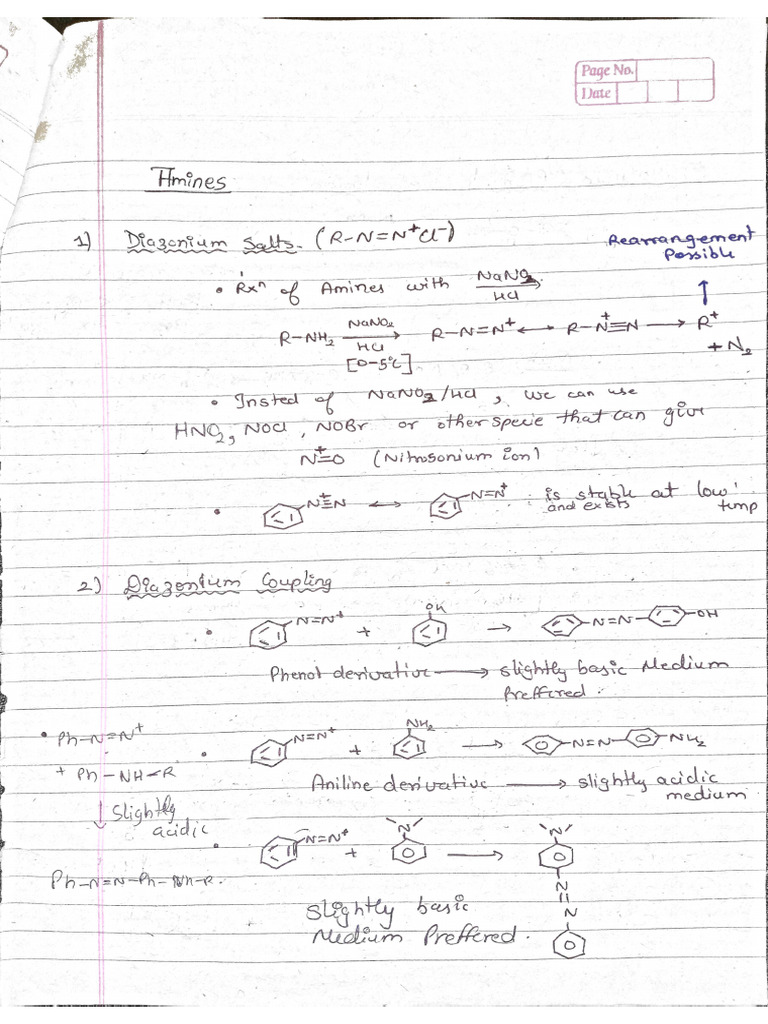 Page No.
Date
Amines
1) Diazonium Salts. (R-N=N⁺Cl⁻)
Rearrangement
Possible
• Rxⁿ of Amines with NaNO₂
HCl
R-NH₂ NaNO₂ → R-N=N⁺ ↔ R-N⁺≡N → R⁺
HCl + N₂
[0-5°C]
• Insted of NaNO₂/HCl, we can use
HNO₂, NOCl, NOBr or other specie that can give
N⁺=O (Nitrosonium ion)
• N⁺≡N ↔ N=N⁺ is stable at low
and exists temp
2) Diazonium Coupling
• N=N⁺ + OH → -N=N- -OH
Phenol derivative → slightly basic Medium
Preffered.
• Ph-N=N⁺
+ Ph-NH-R
↓ Slightly
acidic
Ph-N=N-Ph-Nh-R.
• N=N⁺ + NH₂ → -N=N- -NH₂
Aniline derivative → slightly acidic
medium
• N=N⁺ + N → N
N
=
N
Slightly basic
Medium Preffered.